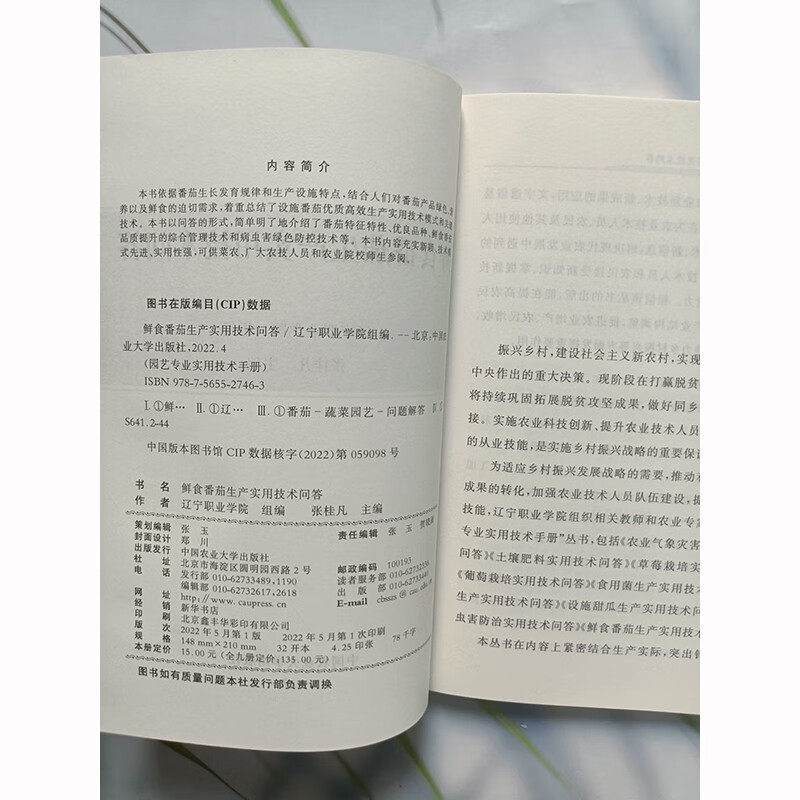 内容简介
本书依据番茄生长发育规律和生产设施特点，结合人们对番茄产品绿色、营
养以及鲜食的迫切需求，着重总结了设施番茄优质高效生产实用技术模式和关键
技术。本书以问答的形式，简单明了地介绍了番茄特征特性、优良品种、鲜食番茄
品质提升的综合管理技术和病虫害绿色防控技术等。本书内容充实新颖、技术模
式先进、实用性强，可供菜农、广大农技人员和农业院校师生参阅。
图书在版编目（CIP）数据
鲜食番茄生产实用技术问答/辽宁职业学院组编. -- 北京：中国农
业大学出版社，2022.4
（园艺专业实用技术手册）
ISBN 978-7-5655-2746-3
Ⅰ.①鲜… Ⅱ.①辽… Ⅲ.①番茄－蔬菜园艺－问题解答 Ⅳ.①
S641.2-44
中国版本图书馆 CIP 数据核字（2022）第 059098 号
书 名 鲜食番茄生产实用技术问答
作 者 辽宁职业学院 组编 张桂凡 主编
策划编辑 张 玉 责任编辑 张 玉
封面设计 郑 川
出版发行 中国农业大学出版社
社 址 北京市海淀区圆明园西路2号 邮政编码 100193
电 话 发行部 010-62733489,1190 读者服务部 010-62732336
编辑部 010-62732617,2618 出 版 部 010-62733440
网 址 http://www.caupress.cn E-mail cbsszs @ cau.edu.
经 销 新华书店
印 刷 北京鑫丰华彩印有限公司
版 次 2022年5月第1版 2022年5月第1次印刷
规 格 148 mm×210 mm 32开本 4.25印张 78千字
本册定价 15.00元（全九册定价：135.00元）
图书如有质量问题本社发行部负责调换
振兴乡村，建设社会主义新农村，实现
中央作出的重大决策。现阶段在打赢脱贫
将持续巩固拓展脱贫攻坚成果，做好同乡
接。实施农业科技创新、提升农业技术人员
的从业技能，是实施乡村振兴战略的重要保
为适应乡村振兴发展战略的需要，推动
成果的转化，加强农业技术人员队伍建设，提
技能，辽宁职业学院组织相关教师和农业专
专业实用技术手册”丛书，包括《农业气象灾害
问答》《土壤肥料实用技术问答》《草莓栽培实
《葡萄栽培实用技术问答》《食用菌生产实用技
生产实用技术问答》《设施甜瓜生产实用技术问
虫害防治实用技术问答》《鲜食番茄生产实用技术
本丛书在内容上紧密结合生产实际，突出